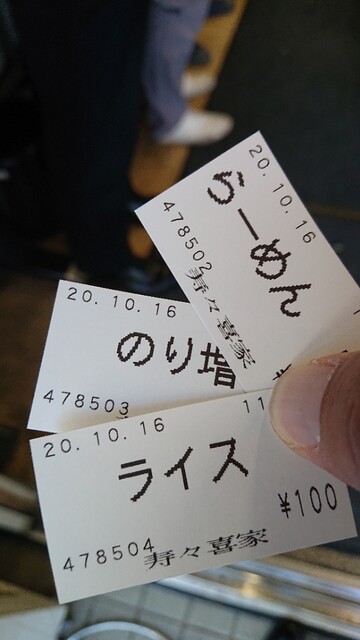 20.10.16
らーめん
478502
寿々喜家
20.10.16
のり増
478503
20.10.16
11
ライス
¥100
478504
寿々喜家